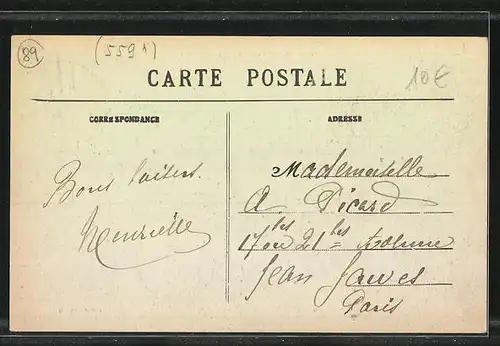 89
(559 1)
CARTE POSTALE
10€
CORRESPONDANCE
ADRESSE
Bons baisers.
Henriette
Mademoiselle
A. Picard
17 ou 21 bis
Jean Jaures
Paris